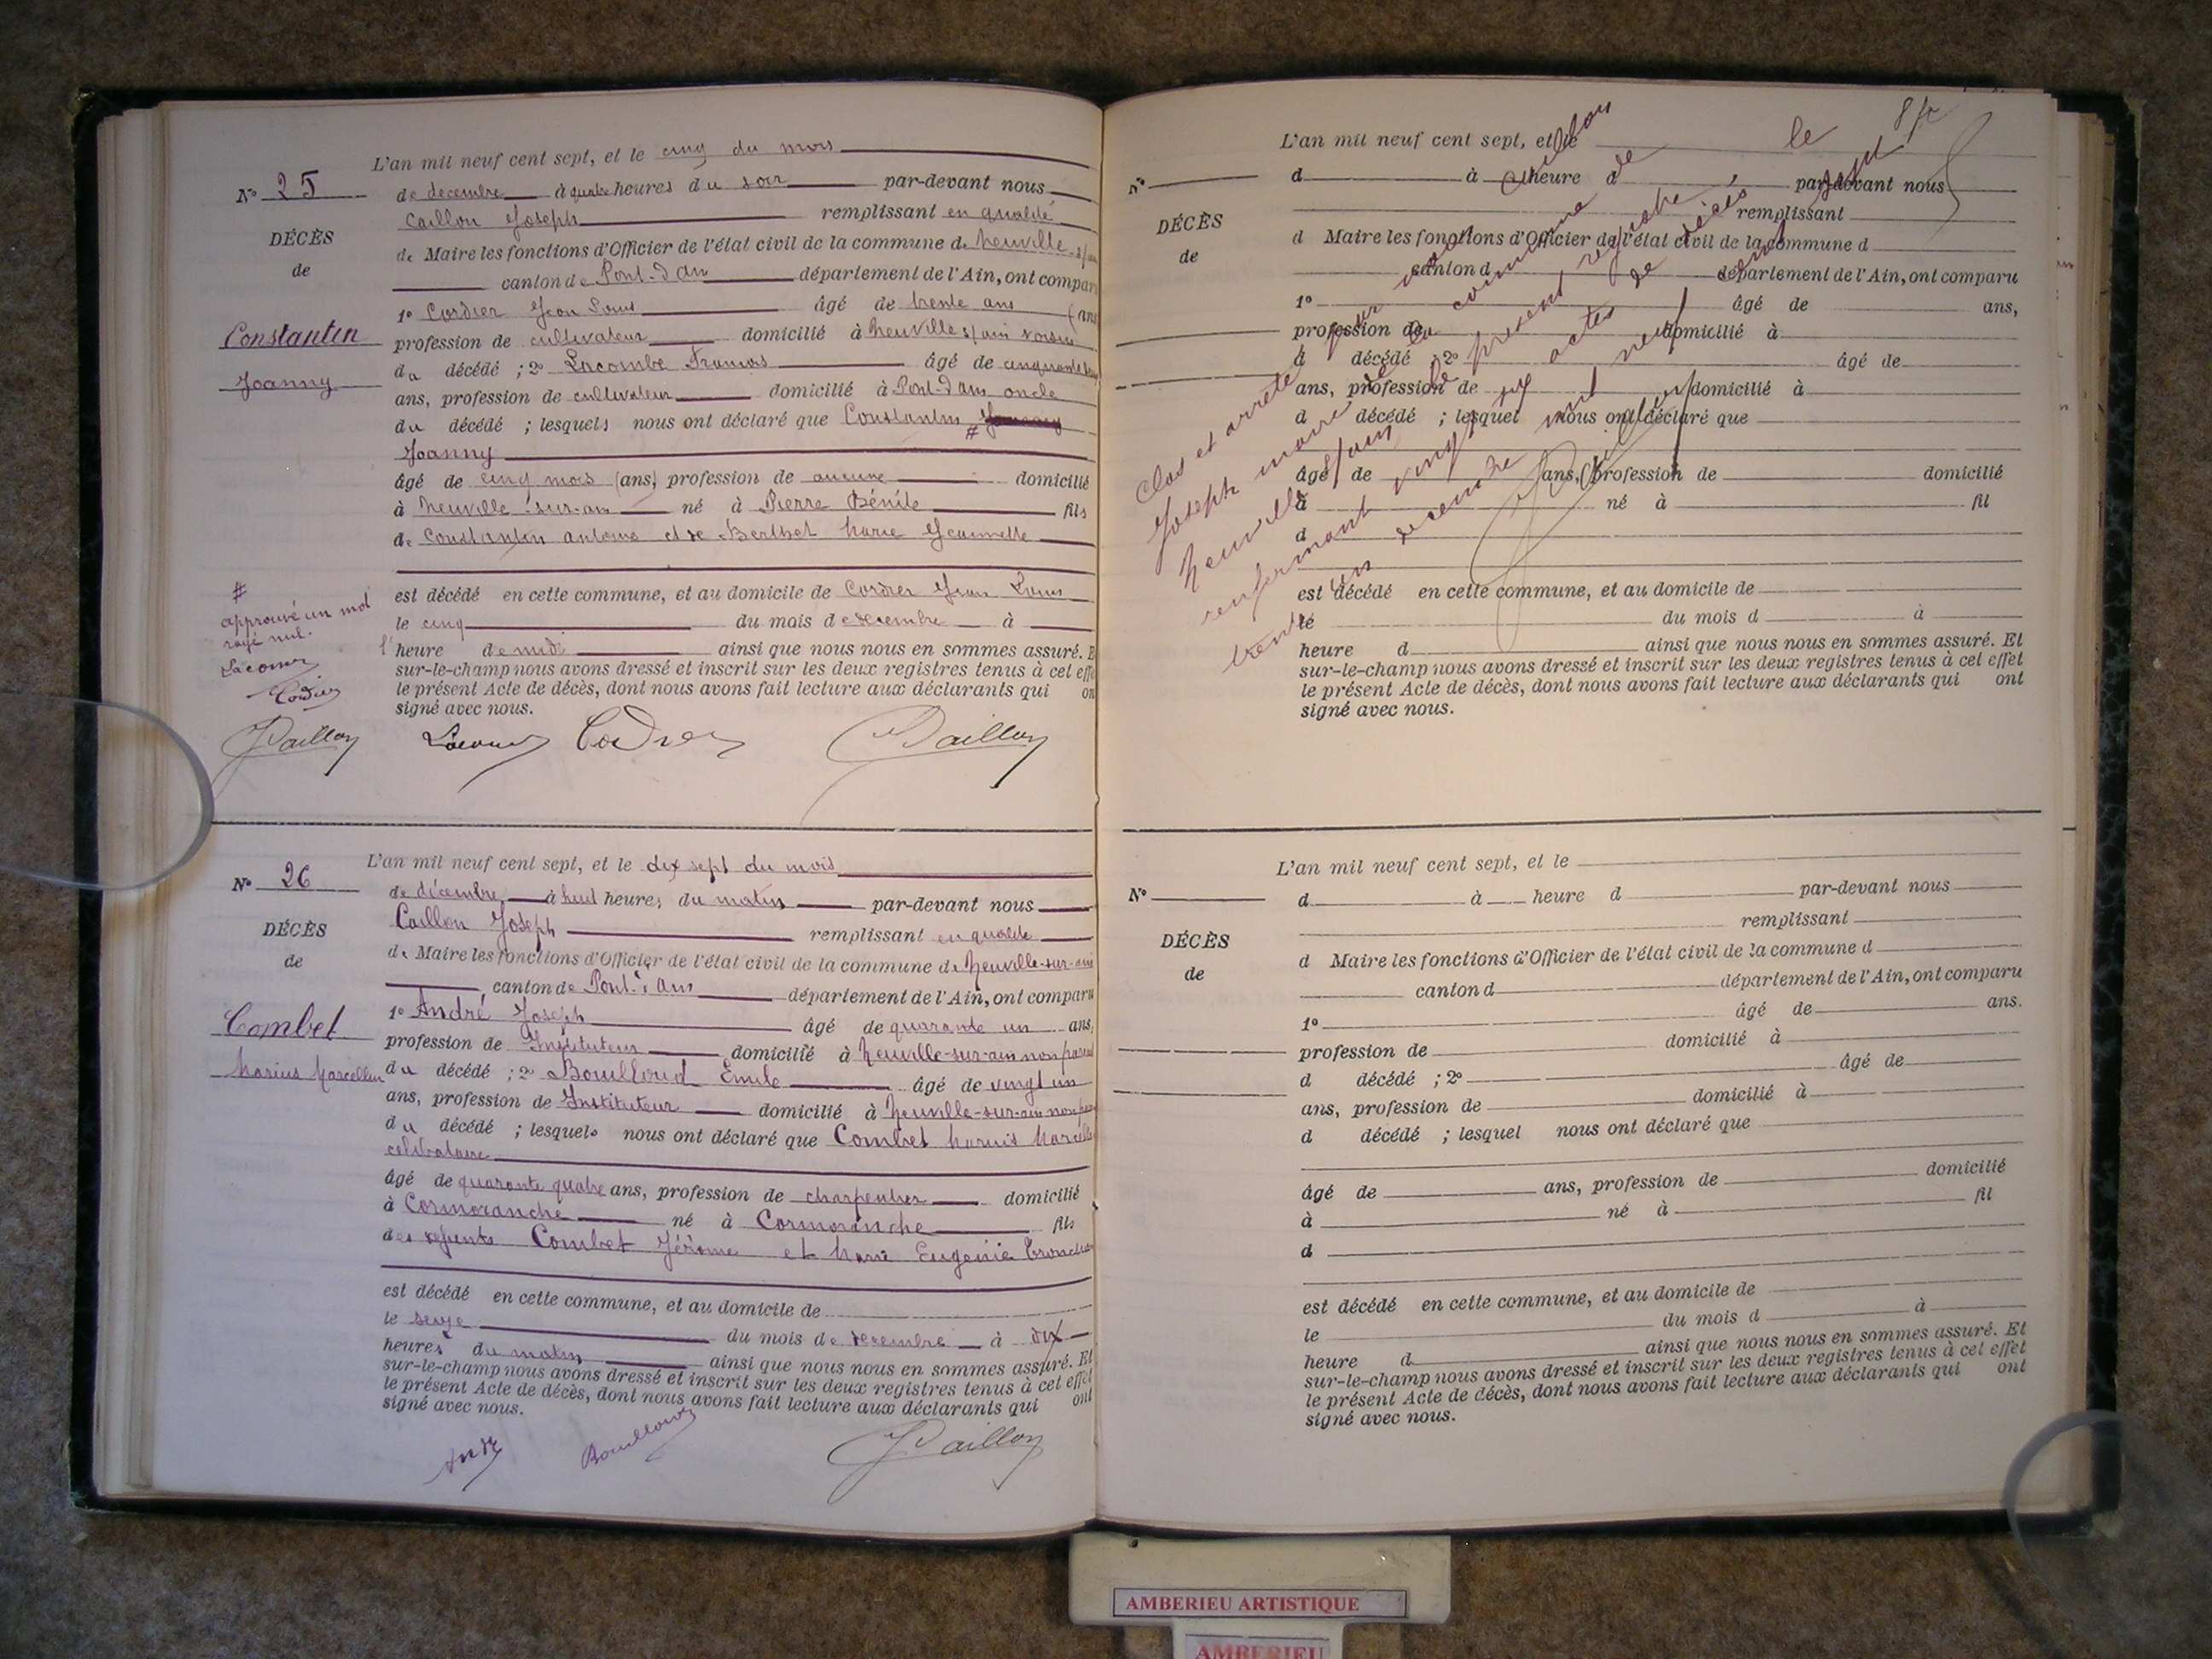 L'an mil neuf cent sept, et le cinq du mois
N° 25
de decembre à quatre heures du soir par-devant nous
Caillon Joseph remplissant en qualité
DÉCÈS
de Maire les fonctions d'Officier de l'état civil de la commune de Neuville s/ain
de
canton de Pont-d'ain département de l'Ain, ont comparu
1° Cordier Jean Louis âgé de trente ans (ans
Constantin
profession de cultivateur domicilié à Neuville s/ain voisin
Joanny
du décédé ; 2° Lacombe François âgé de cinquante
ans, profession de cultivateur domicilié à Pont-d'ain oncle
du décédé ; lesquels nous ont déclaré que Constantin #
Joanny
âgé de cinq mois (ans) profession de aucune domicilié
à Neuville-sur-ain né à Pierre Bénite fils
de Constantin antoine et de Berthet Marie Jeannette
est décédé en cette commune, et au domicile de Cordier Jean Louis
le cinq du mois de decembre à
l'heure de midi ainsi que nous nous en sommes assuré. Et
sur-le-champ nous avons dressé et inscrit sur les deux registres tenus à cet effet
le présent Acte de décès, dont nous avons fait lecture aux déclarants qui ont
signé avec nous.
#
approuvé un mot
rayé nul.
Cordier
JCaillon Cordier JCaillon
L'an mil neuf cent sept, et le dix sept du mois
N° 26
de décembre à huit heures du matin par-devant nous
Caillon Joseph remplissant en qualité
DÉCÈS
de Maire les fonctions d'Officier de l'état civil de la commune de Neuville-sur-ain
de
canton de Pont-d'Ain département de l'Ain, ont comparu
1° André Joseph âgé de quarante un ans,
Combet
profession de Instituteur domicilié à Neuville-sur-ain non parent
Marius Marcellin
du décédé ; 2° Bouilloud Émile âgé de vingt un
ans, profession de Instituteur domicilié à Neuville-sur-ain non
du décédé ; lesquels nous ont déclaré que Combet Marius
célibataire
âgé de quarante quatre ans, profession de charpentier domicilié
à Cormoranche né à Cormoranche fils
des Combet Jérôme et Marie Eugénie
est décédé en cette commune, et au domicile de
le seize du mois de decembre à dix
heures du matin ainsi que nous nous en sommes assuré. Et
sur-le-champ nous avons dressé et inscrit sur les deux registres tenus à cet effet
le présent Acte de décès, dont nous avons fait lecture aux déclarants qui ont
signé avec nous.
André Bouilloud JCaillon
L'an mil neuf cent sept, et le
N°
d à heure d par-devant nous
remplissant
DÉCÈS
d Maire les fonctions d'Officier de l'état civil de la commune d
de
canton d département de l'Ain, ont comparu
1° âgé de ans,
profession de domicilié à
d décédé ; 2° âgé de
ans, profession de domicilié à
d décédé ; lesquel nous ont déclaré que
âgé de ans, profession de domicilié
à né à fil
d
est décédé en cette commune, et au domicile de
le du mois d à
heure d ainsi que nous nous en sommes assuré. Et
sur-le-champ nous avons dressé et inscrit sur les deux registres tenus à cet effet
le présent Acte de décès, dont nous avons fait lecture aux déclarants qui ont
signé avec nous.
Clos et arrêté par nous Caillon
Joseph maire de la commune de
Neuville s/ain le présent registre
renfermant vingt six actes de décès le
trente un decembre mil neuf cent sept
JCaillon
L'an mil neuf cent sept, et le
N°
d à heure d par-devant nous
remplissant
DÉCÈS
d Maire les fonctions d'Officier de l'état civil de la commune d
de
canton d département de l'Ain, ont comparu
1° âgé de ans.
profession de domicilié à
d décédé ; 2° âgé de
ans, profession de domicilié à
d décédé ; lesquel nous ont déclaré que
âgé de ans, profession de domicilié
à né à fil
d
est décédé en cette commune, et au domicile de
le du mois d à
heure d ainsi que nous nous en sommes assuré. Et
sur-le-champ nous avons dressé et inscrit sur les deux registres tenus à cet effet
le présent Acte de décès, dont nous avons fait lecture aux déclarants qui ont
signé avec nous.
AMBERIEU ARTISTIQUE
AMBERIEU